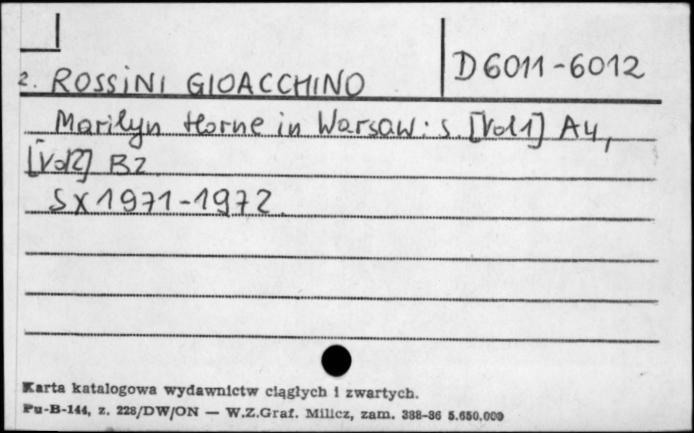 D 6011-6012
2. ROSSINI GIOACCHINO
Marilyn Horne in Warsaw : s. [Vol1] A4,
[Vol2] B2
SX 1971-1972
Karta katalogowa wydawnictw ciągłych i zwartych.
Pu-B-144, z. 228/DW/ON — W.Z.Graf. Milicz, zam. 388-86 5.650.000